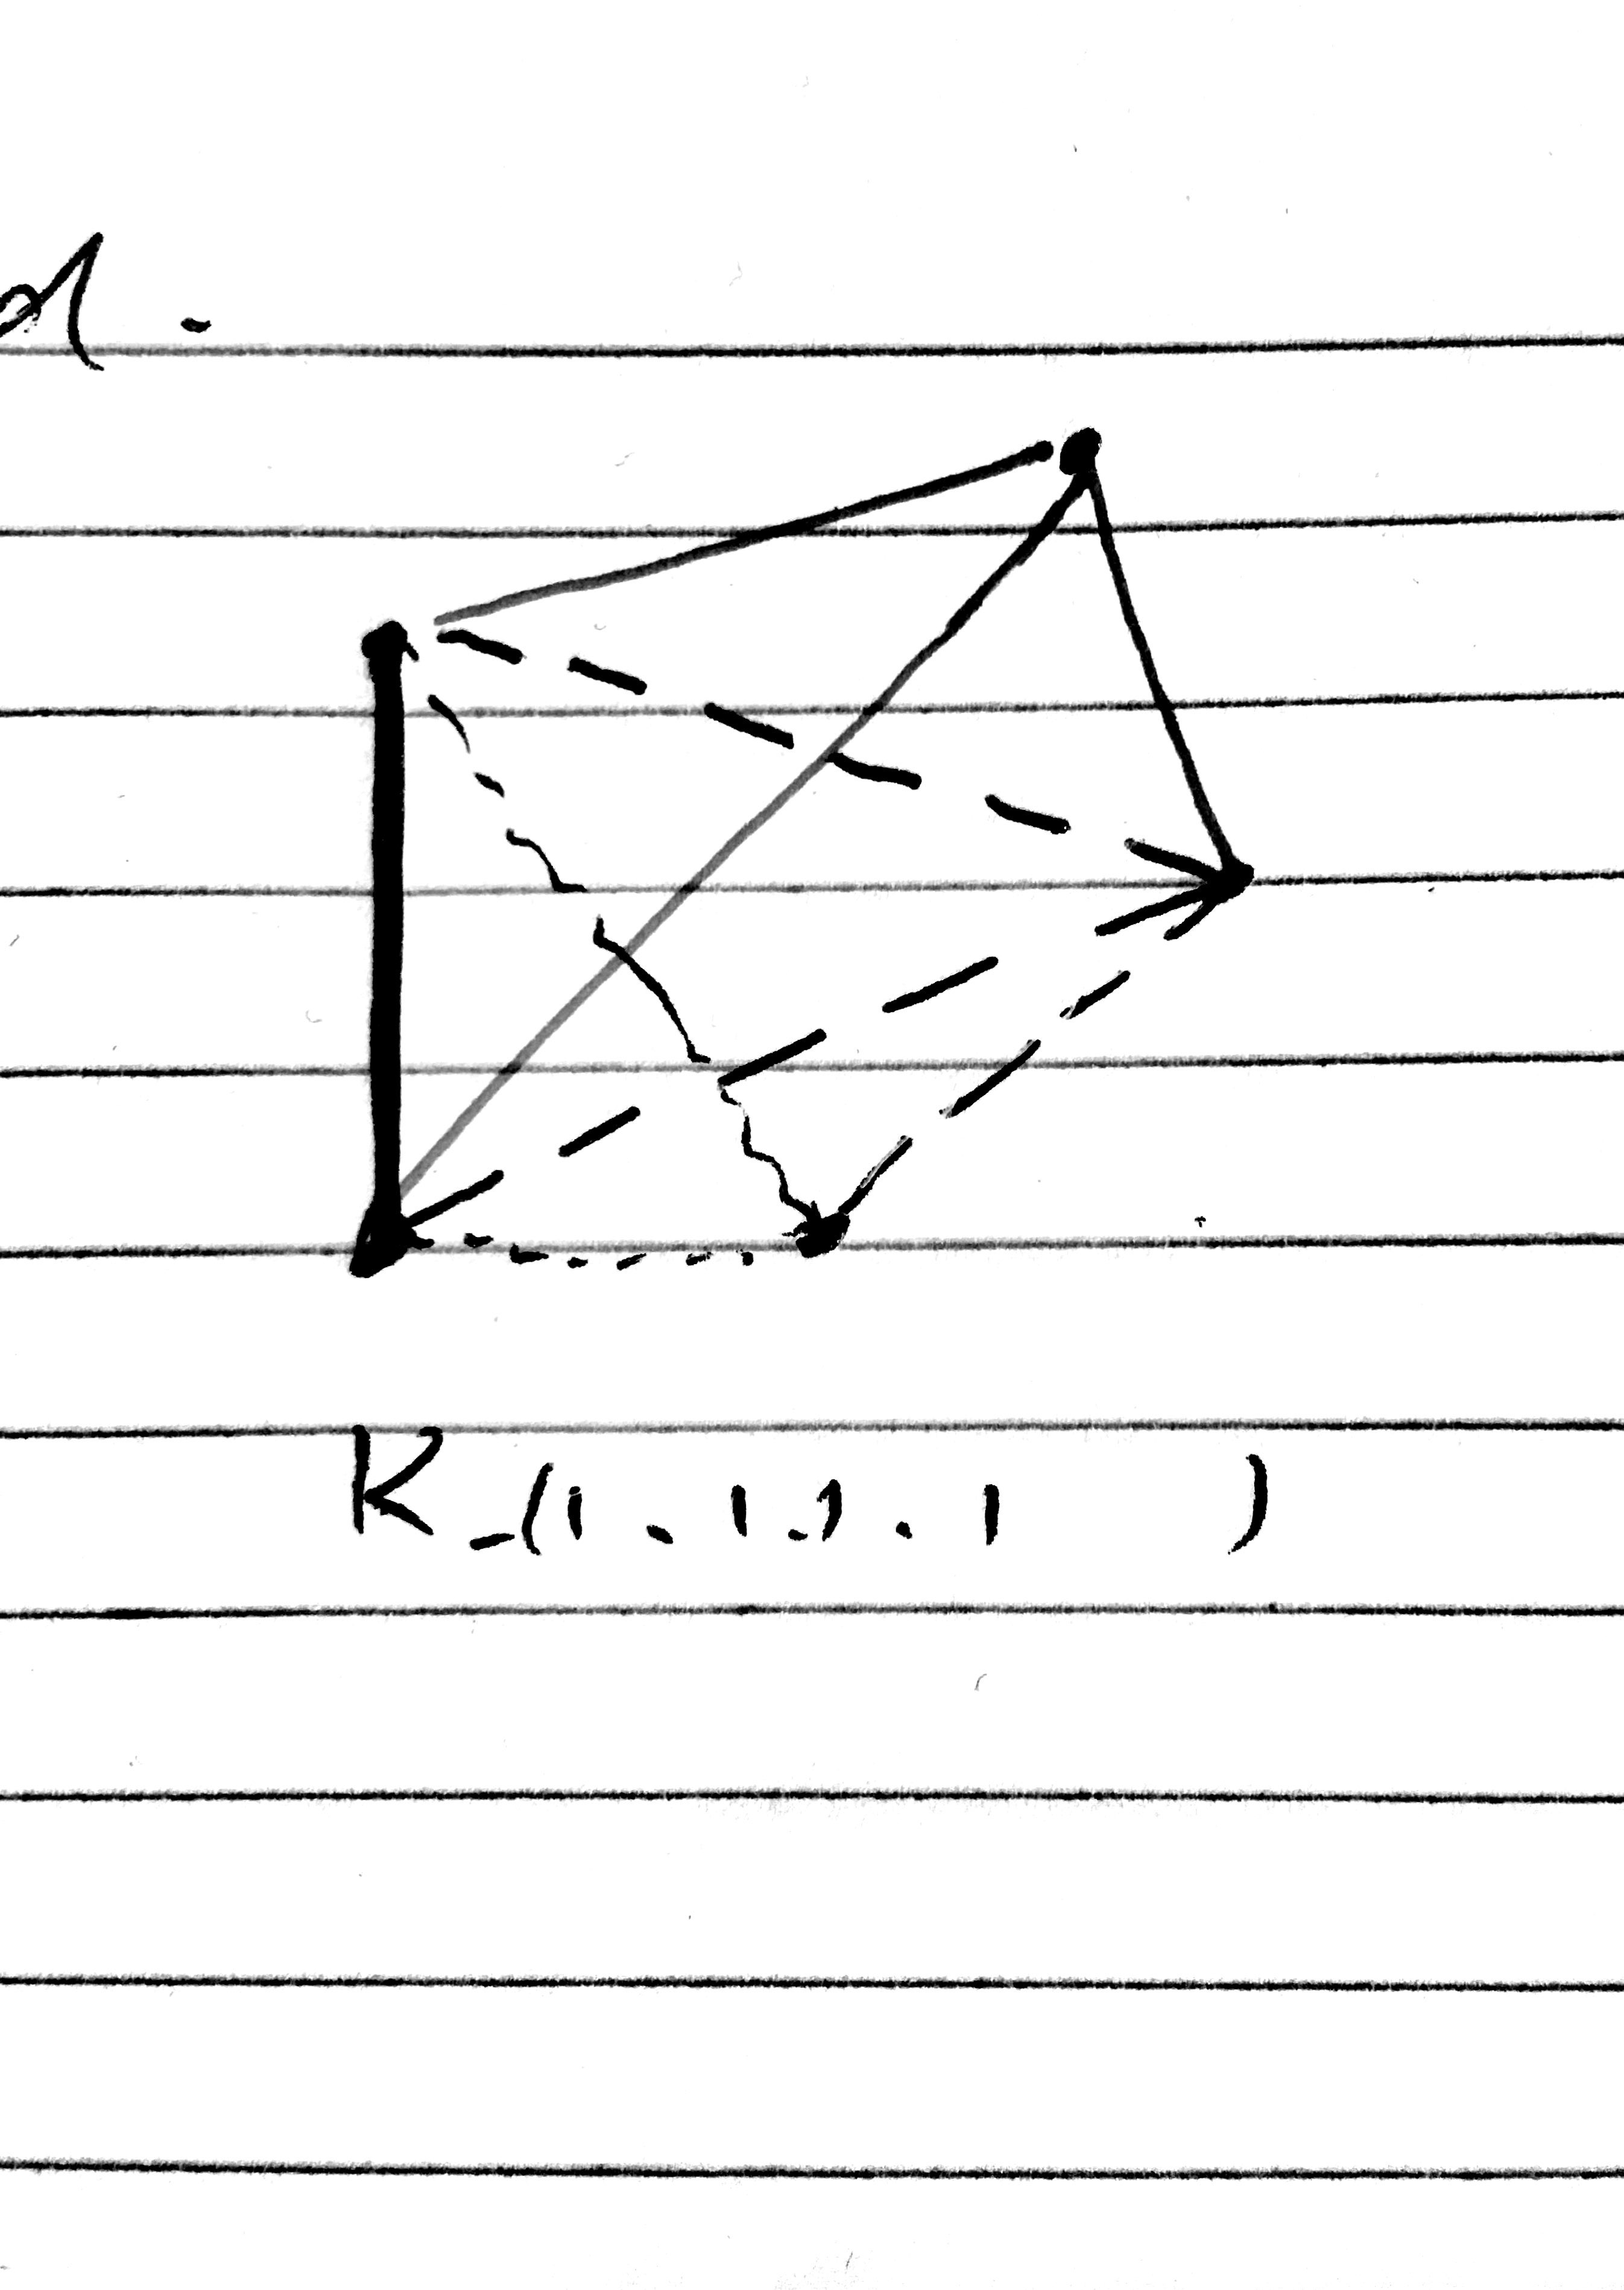 K_(1.1.1.1 )